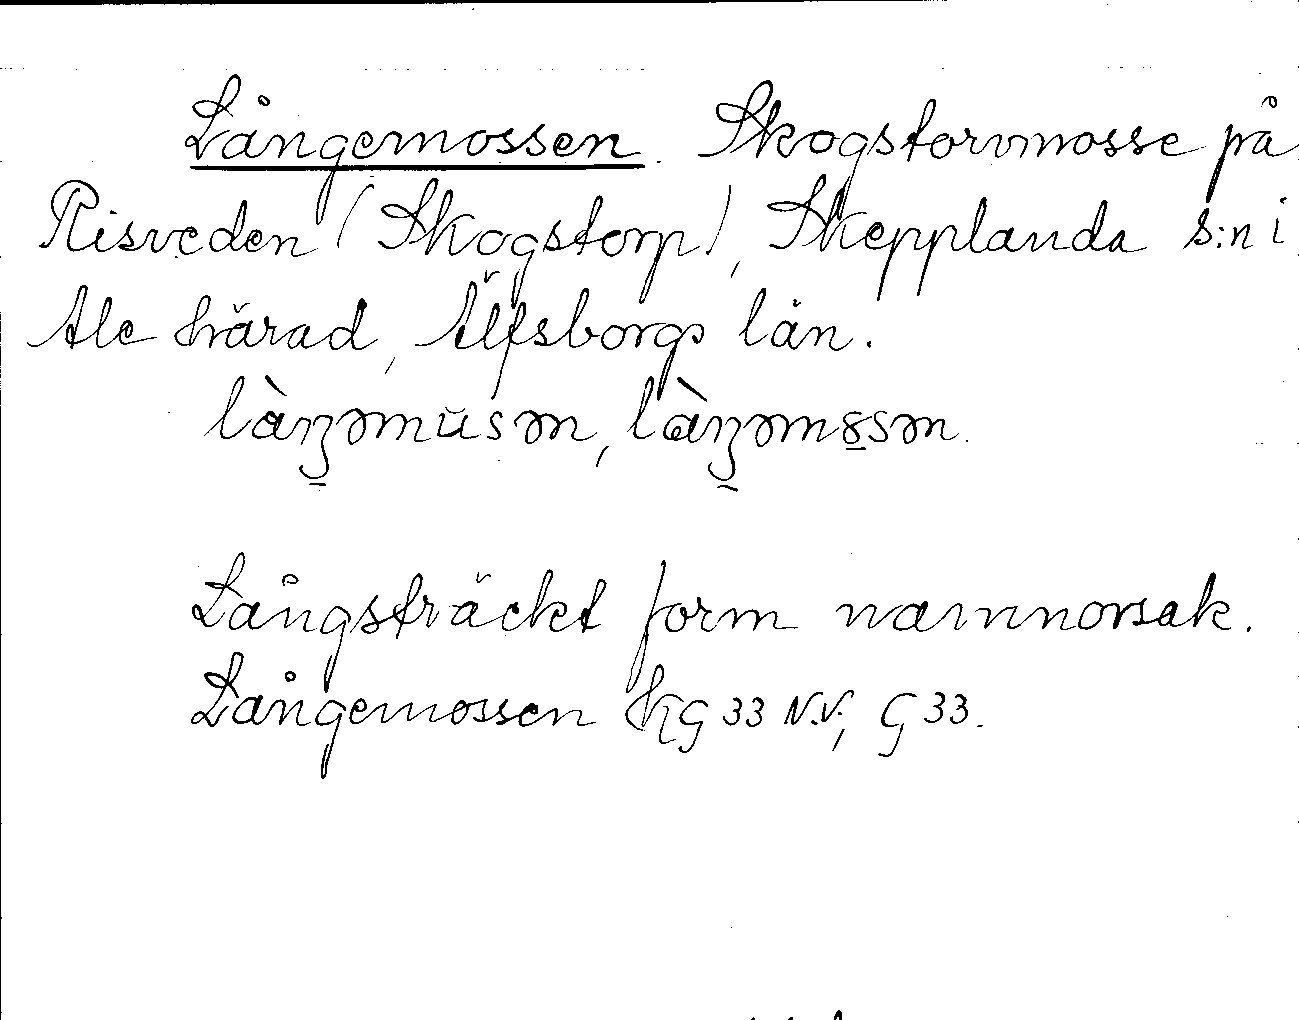 Långemossen. Skogstorvmosse på
Risveden (Skogstorp), Skepplanda s:n i
Ale härad, Älfsborgs län.
Långsträckt form namnorsak.
Långemossen HKG 33 N.V., G 33.